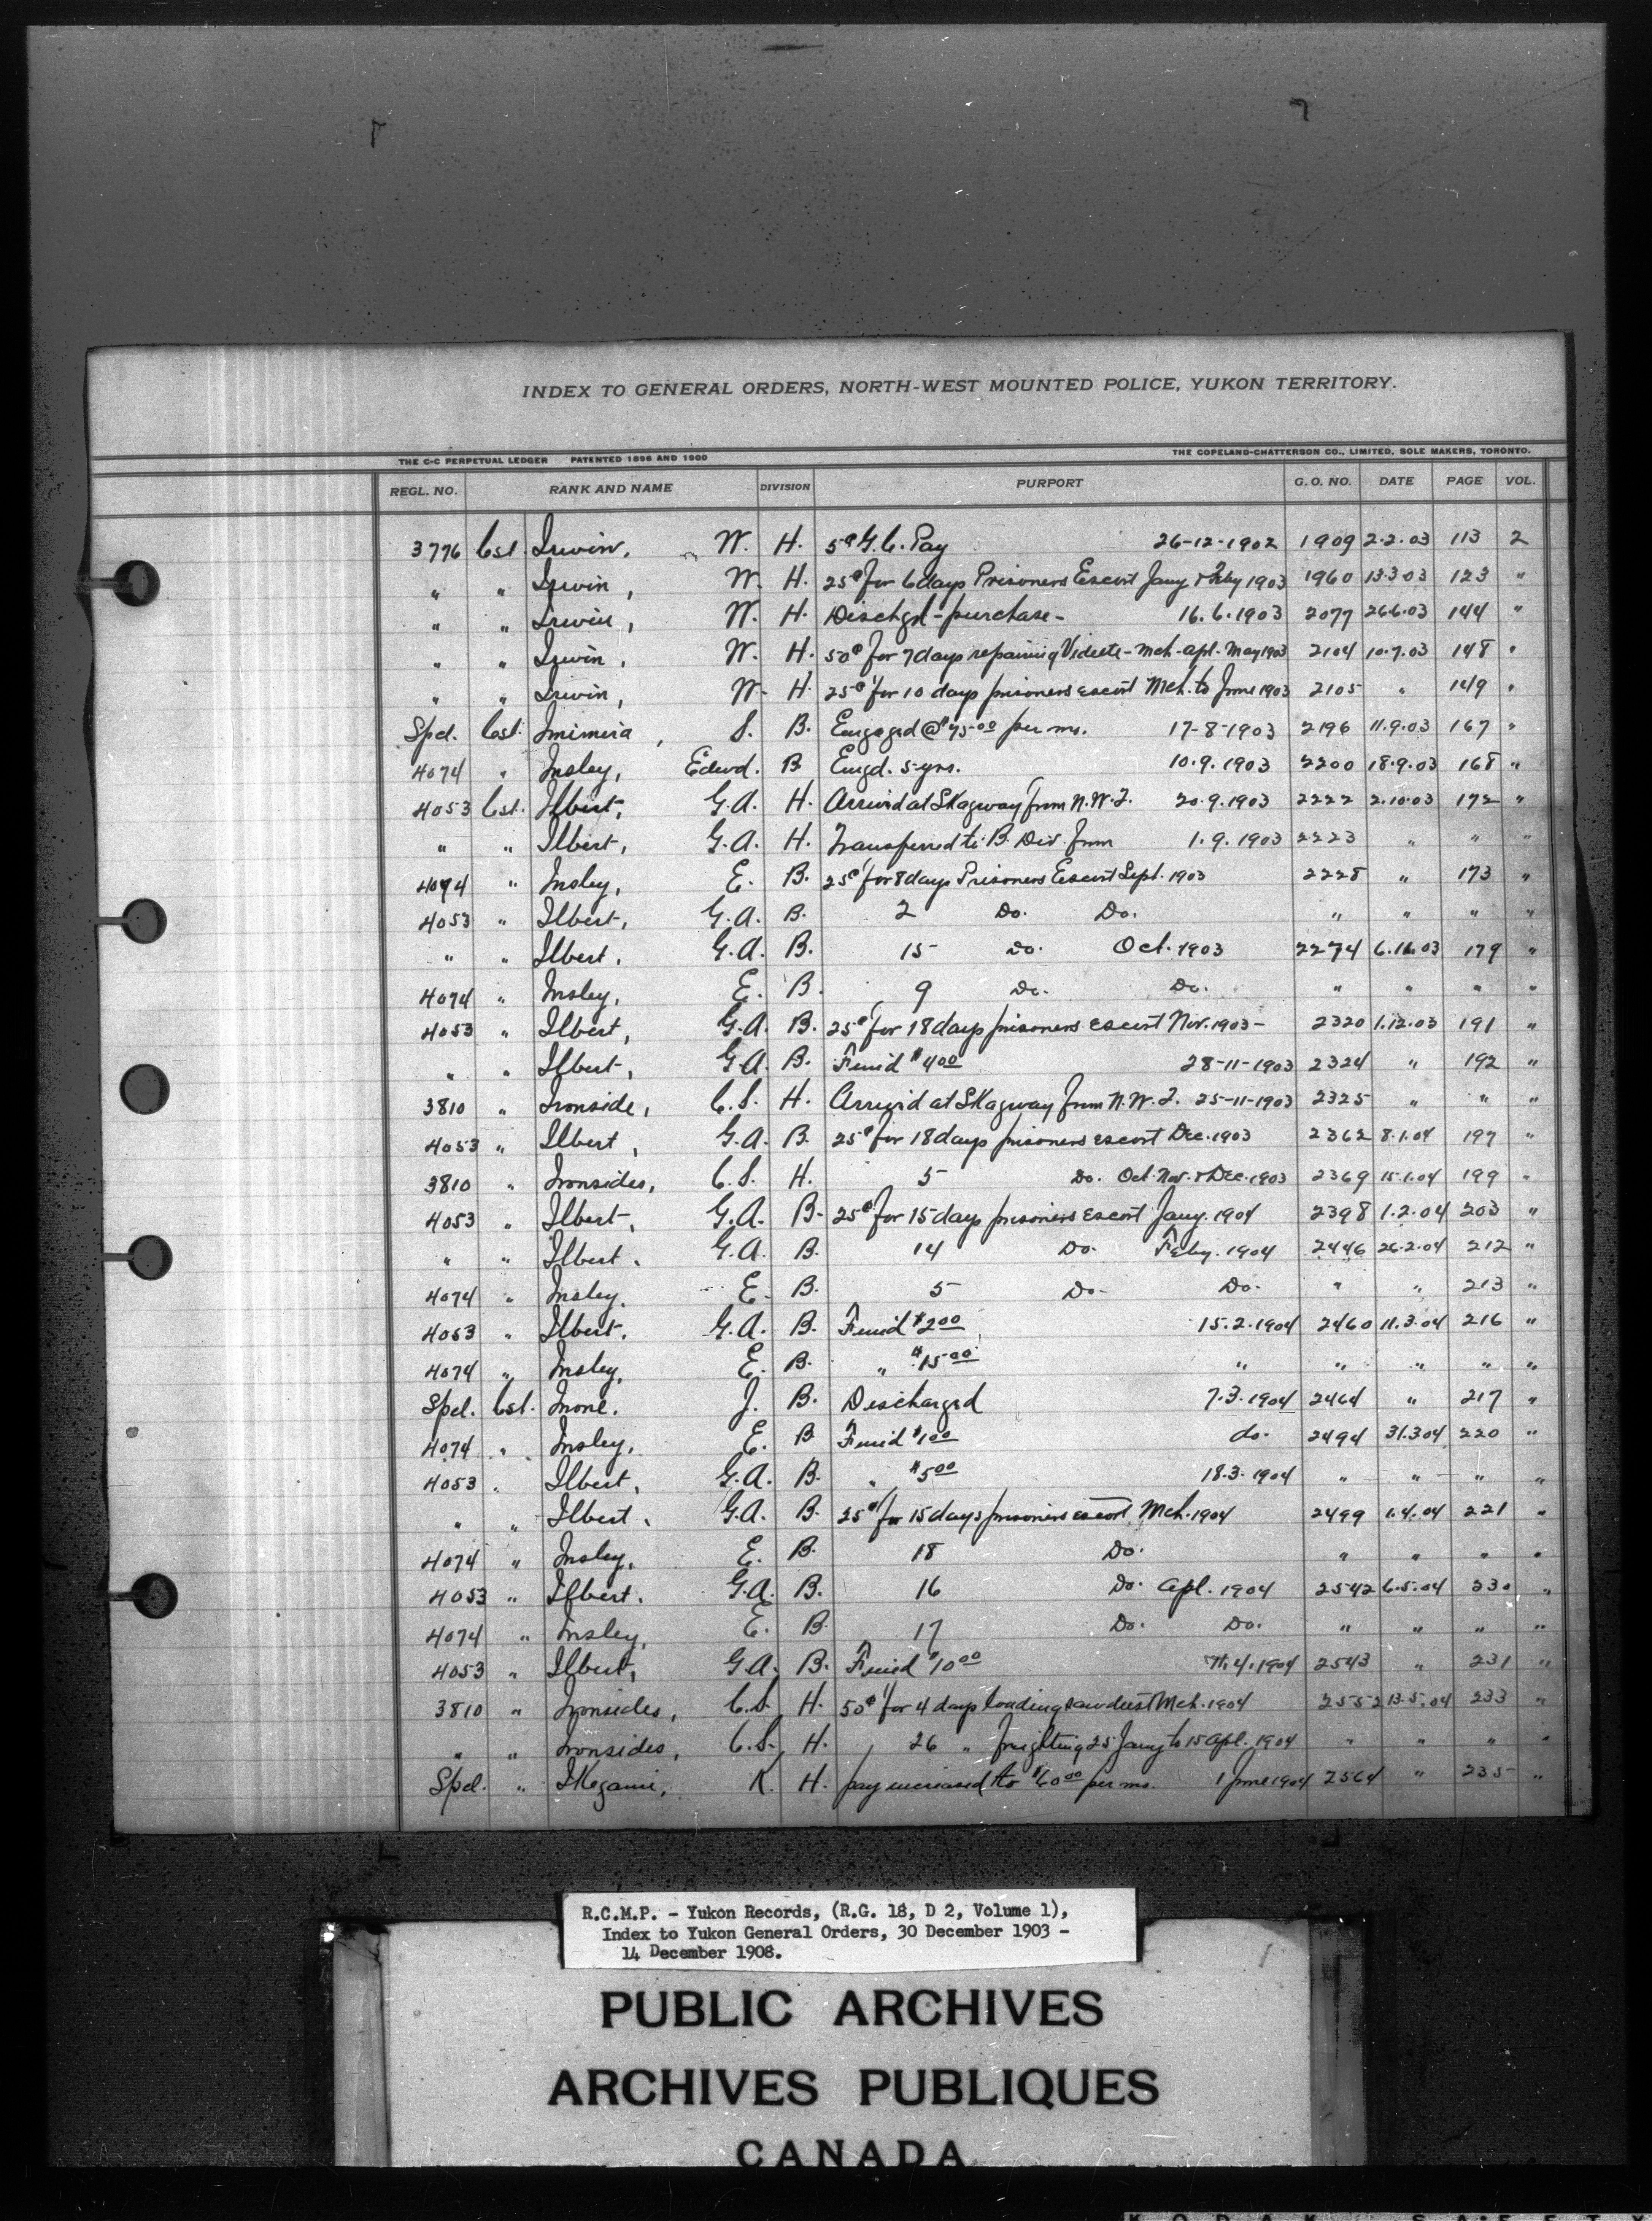 INDEX TO GENERAL ORDERS, NORTH-WEST MOUNTED POLICE, YUKON TERRITORY.
THE C-C PERPETUAL LEDGER PATENTED 1896 AND 1900 THE COPELAND-CHATTERSON CO., LIMITED, SOLE MAKERS, TORONTO.
REGL. NO. RANK AND NAME DIVISION PURPORT G. O. NO. DATE PAGE VOL.
3776 Cst. Irwin, W. H. 5¢ G.C. Pay 26-12-1902 1909 2.2.03 113 2
" " Irwin, W. H. 25¢ for 6 days Prisoners Escort Jany & Feby 1903 1960 13.3.03 123 "
" " Irwin, W. H. Dischgd - purchase - 16.6.1903 2077 26.6.03 144 "
" " Irwin, W. H. 50¢ for 7 days repairing Vidette - Mch - Apl - May 1903 2104 10.7.03 148 "
" " Irwin, W. H. 25¢ for 10 days prisoners escort Mch. to June 1903 2105 " 149 "
Spcl. Cst. Imimura, S. B. Engaged @ $75.00 per mo. 17-8-1903 2196 11.9.03 167 "
4074 " Insley, Edwd. B. Engd. 5 yrs. 10.9.1903 2200 18.9.03 168 "
4053 Cst. Ilbert, G.A. H. Arrived at Skagway from N.W.T. 20.9.1903 2222 2.10.03 172 "
" " Ilbert, G.A. H. Transferred to B. Div. from 1.9.1903 2223 " " "
4074 " Insley, E. B. 25¢ for 8 days Prisoners Escort Sept. 1903 2228 " 173 "
4053 " Ilbert, G.A. B. 2 Do. Do. " " " "
" " Ilbert, G.A. B. 15 Do. Oct. 1903 2274 6.11.03 179 "
4074 " Insley, E. B. 9 Do. Do. " " " "
4053 " Ilbert, G.A. B. 25¢ for 18 days prisoners escort Nov. 1903 - 2320 1.12.03 191 "
" " Ilbert, G.A. B. Fined $4.00 28-11-1903 2324 " 192 "
3810 " Ironside, C.S. H. Arrived at Skagway from N.W.T. 25-11-1903 2325 " " "
4053 " Ilbert, G.A. B. 25¢ for 18 days prisoners escort Dec. 1903 2362 8.1.04 197 "
3810 " Ironsides, C.S. H. 5 Do. Oct. Nov. & Dec. 1903 2369 15.1.04 199 "
4053 " Ilbert, G.A. B. 25¢ for 15 days prisoners escort Jany. 1904 2398 1.2.04 203 "
" " Ilbert. G.A. B. 14 Do. Feby. 1904 2446 26.2.04 212 "
4074 " Insley, E. B. 5 Do. Do. " " 213 "
4053 " Ilbert, G.A. B. Fined $2.00 15.2.1904 2460 11.3.04 216 "
4074 " Insley, E. B. " $15.00 " " " " "
Spcl. Cst. Inone. J. B. Discharged 7.3.1904 2464 " 217 "
4074 " Insley, E. B. Fined $1.00 do. 2494 31.3.04 220 "
4053 " Ilbert, G.A. B. " $5.00 18.3.1904 " " " "
" " Ilbert. G.A. B. 25¢ for 15 days prisoners escort Mch. 1904 2499 1.4.04 221 "
4074 " Insley, E. B. 18 Do. " " " "
4053 " Ilbert. G.A. B. 16 Do. Apl. 1904 2542 6.5.04 230 "
4074 " Insley, E. B. 17 Do. Do. " " " "
4053 " Ilbert, G.A. B. Fined $10.00 .4.1904 2543 " 231 "
3810 " Ironsides, C.S. H. 50¢ for 4 days loading sawdust Mch. 1904 2552 13.5.04 233 "
" " Ironsides, C.S. H. 26 " freighting 25 Jany to 15 Apl. 1904 " " " "
Spcl. " IKegami, K. H. pay increased to $60.00 per mo. 1 June 1904 2564 " 235 "
R.C.M.P. - Yukon Records, (R.G. 18, D 2, Volume 1),
Index to Yukon General Orders, 30 December 1903 -
14 December 1908.
PUBLIC ARCHIVES
ARCHIVES PUBLIQUES
CANADA